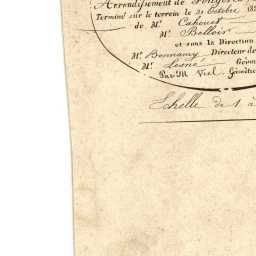 Arrondissement de Fougères
Terminé sur le terrain le 21 Octobre 18
de Mr. Cahouet
Mr. Bellois
et sous la Direction
Mr. Bonnamy Directeur de
Mr. Lesné Géom
Par M. Viel, Géomètre
Echelle de 1 à